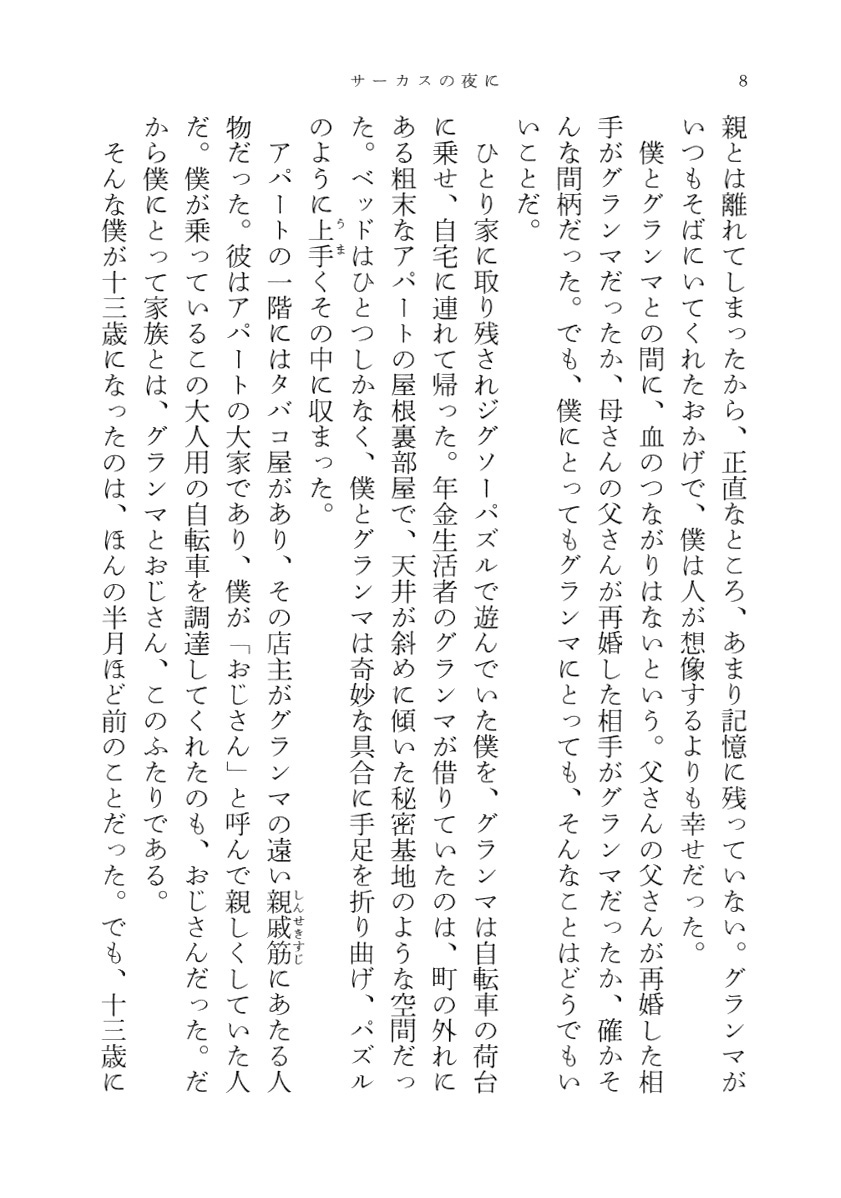 サーカスの夜に
8
親とは離れてしまったから、正直なところ、あまり記憶に残っていない。グランマが
いつもそばにいてくれたおかげで、僕は人が想像するよりも幸せだった。
僕とグランマとの間に、血のつながりはないという。父さんの父さんが再婚した相
手がグランマだったか、母さんの父さんが再婚した相手がグランマだったか、確かそ
んな間柄だった。でも、僕にとってもグランマにとっても、そんなことはどうでもい
いことだ。
ひとり家に取り残されジグソーパズルで遊んでいた僕を、グランマは自転車の荷台
に乗せ、自宅に連れて帰った。年金生活者のグランマが借りていたのは、町の外れに
ある粗末なアパートの屋根裏部屋で、天井が斜めに傾いた秘密基地のような空間だっ
た。ベッドはひとつしかなく、僕とグランマは奇妙な具合に手足を折り曲げ、パズル
のように上手くその中に収まった。
うま
アパートの一階にはタバコ屋があり、その店主がグランマの遠い親戚筋にあたる人
しんせきすじ
物だった。彼はアパートの大家であり、僕が「おじさん」と呼んで親しくしていた人
だ。僕が乗っているこの大人用の自転車を調達してくれたのも、おじさんだった。だ
から僕にとって家族とは、グランマとおじさん、このふたりである。
そんな僕が十三歳になったのは、ほんの半月ほど前のことだった。でも、十三歳に